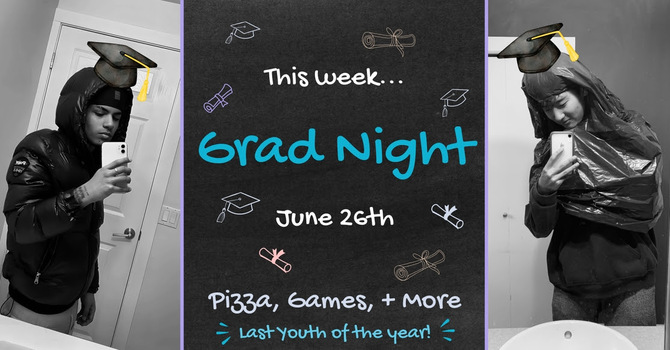 This week...
Grad Night
June 26th
Pizza, Games, + More
Last Youth of the year!